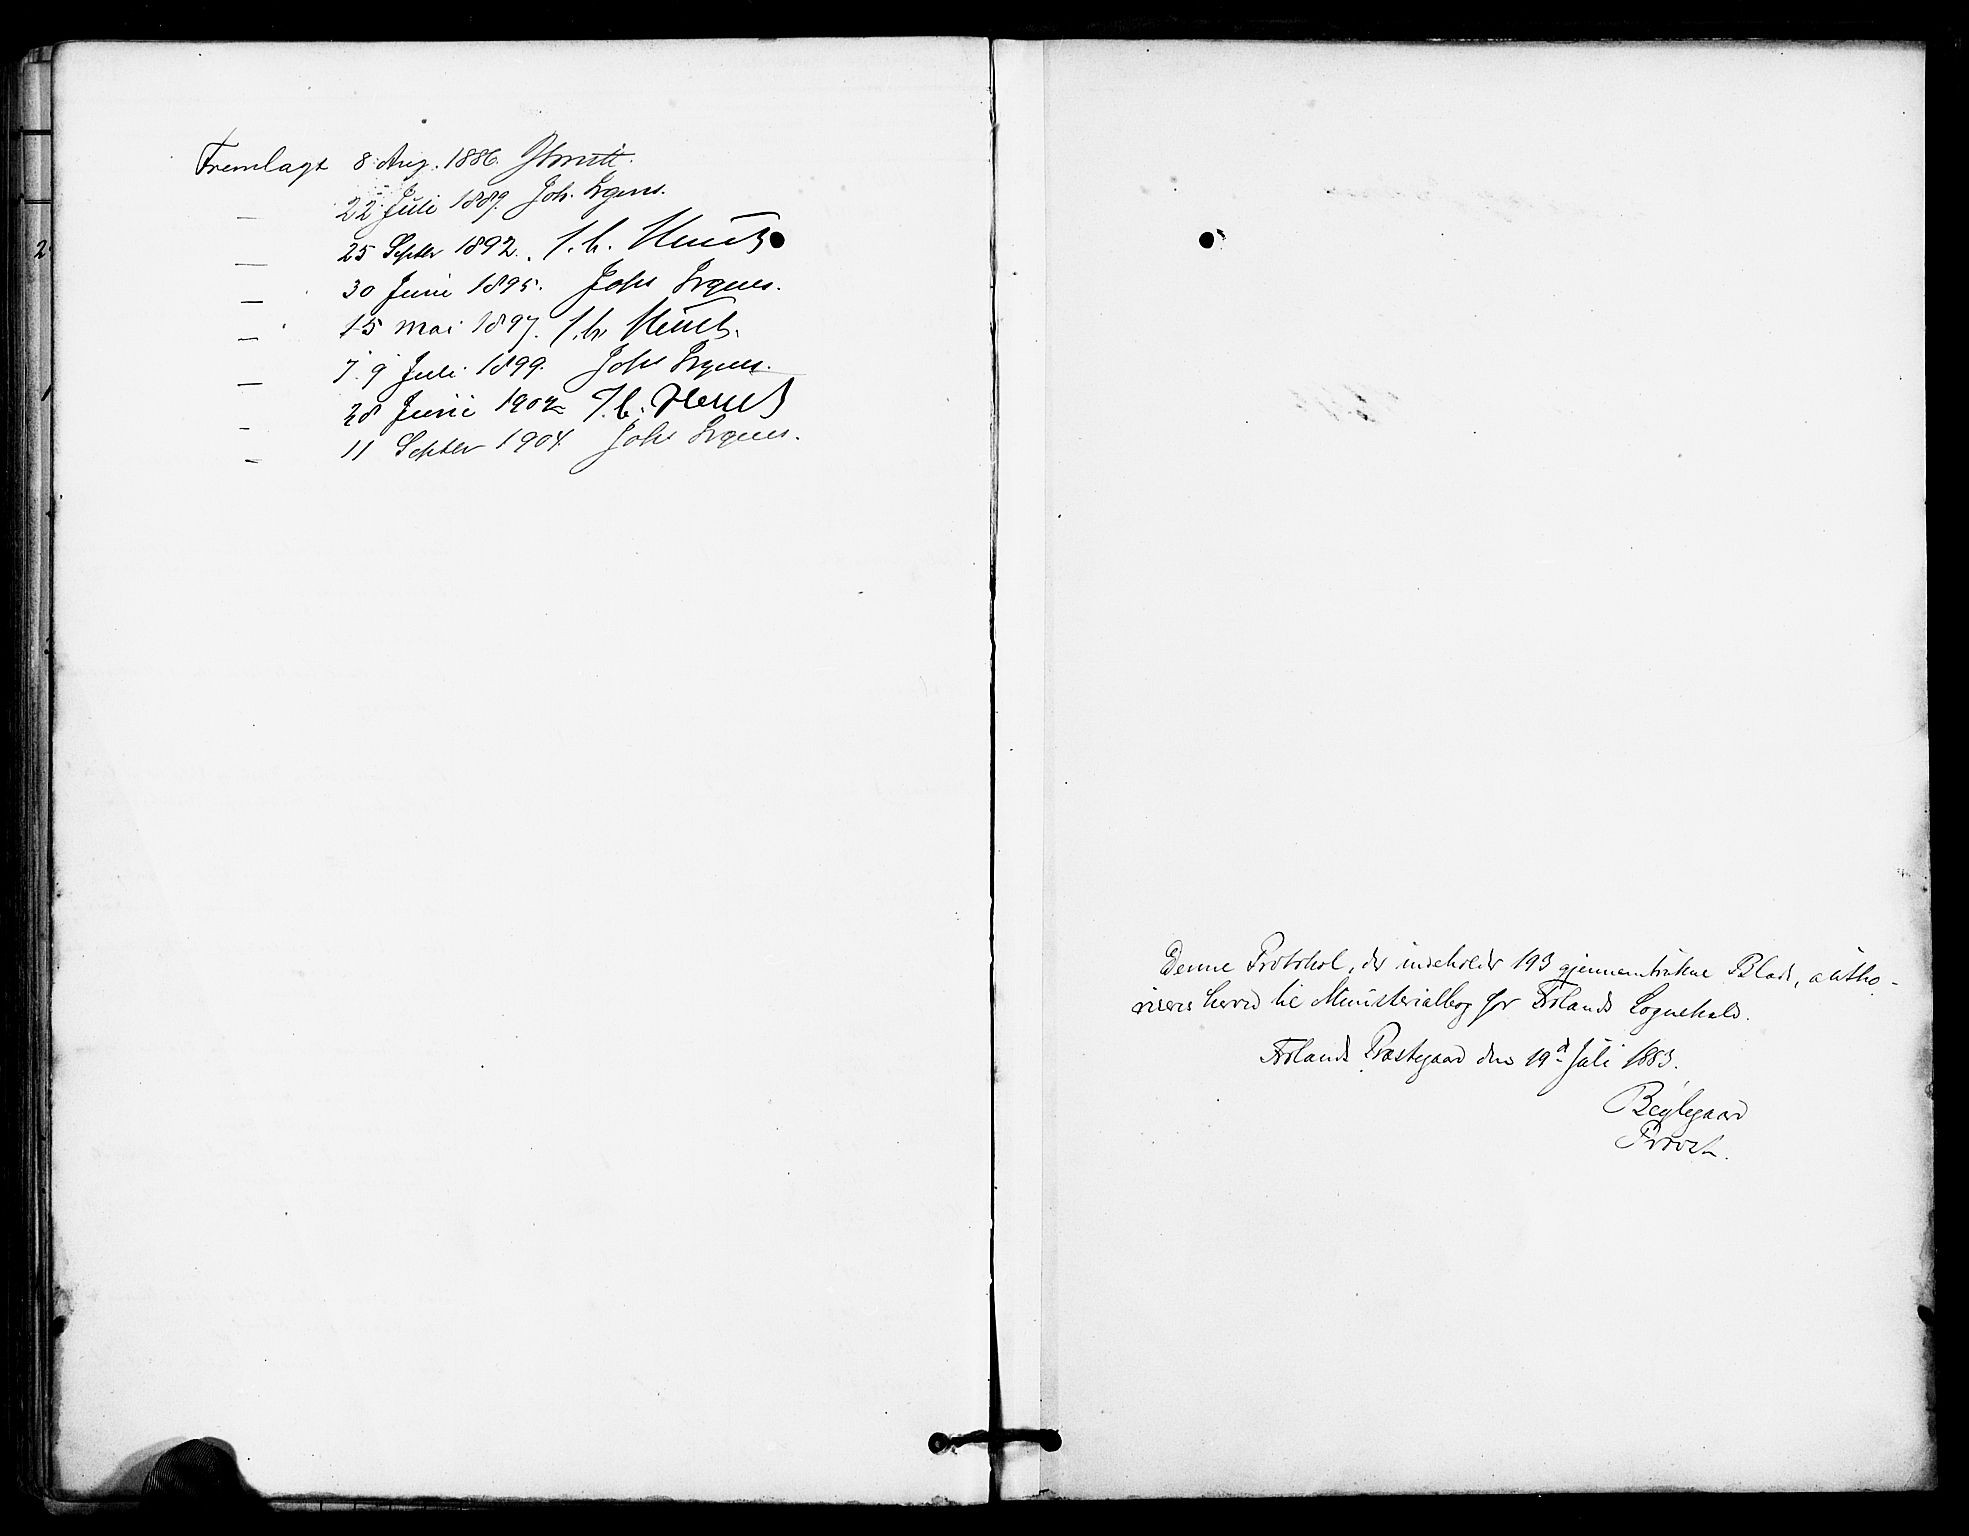 Fremlagt 8 Aug. 1886. JSmitt.
— 22 Juli 1889. Joh. Irgens.
— 25 Septbr 1892. J. C. Heuch
— 30 Juni 1895. Johs Irgens.
— 15 Mai 1897. J. C. Heuch.
— 9 Juli 1899. Johs Irgens.
— 28 Juni 1902 J. C. Heuch
— 11 Septbr 1904 Johs Irgens.
2
Denne Protokol, der indeholder 193 gjennemtrukne Blade, autho-
riseres herved til Ministerialbog for Folands Sognekald.
Folands Præstegaard den 19d Juli 1883.
Bøylegaard
Provst.